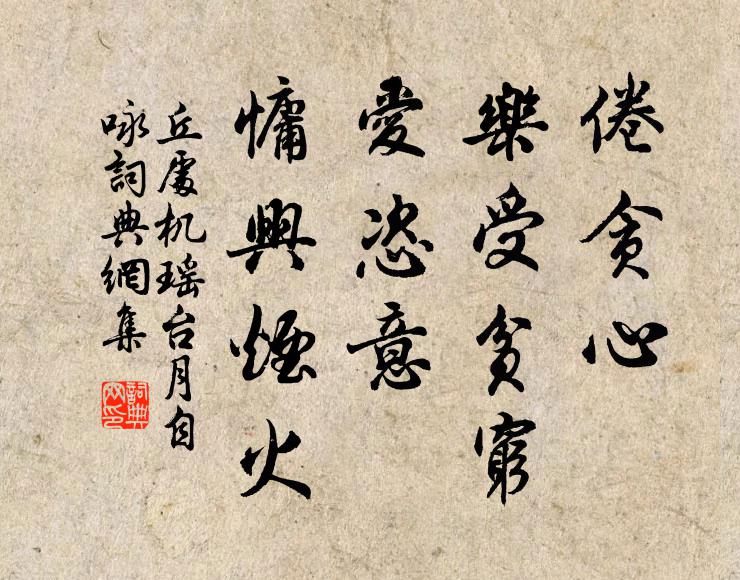 倦貪心
樂受貧窮
愛恣意
慵興煙火
丘處机瑶台月自
咏詞典網集
詞典
网印